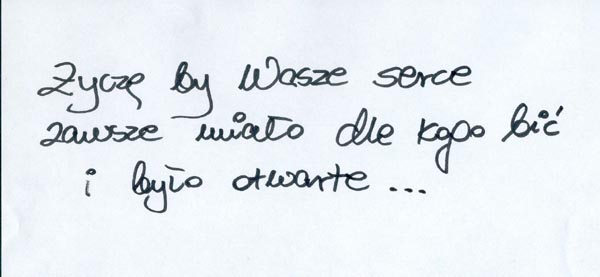 Życzę by Wasze serce
zawsze miało dla kogo bić
i było otwarte ...